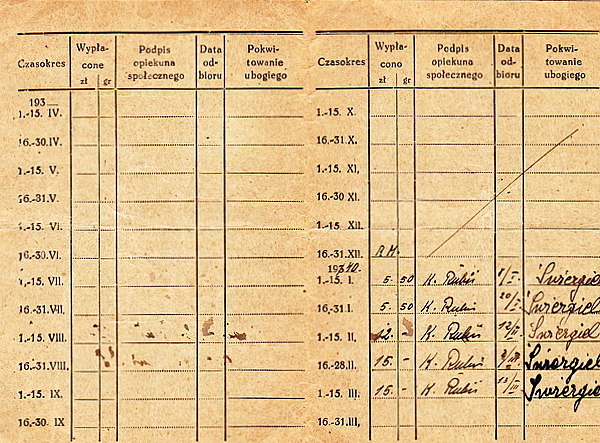 Czasokres Wypła-cone zł gr Podpis opiekuna społecznego Data od-bioru Pokwi-towanie ubogiego
193
1.-15. IV.
16.-30. IV.
1.-15. V.
16.-31. V.
1.-15. VI.
16.-30. VI.
1.-15. VII.
16.-31. VII.
1.-15. VIII.
16.-31. VIII.
1.-15. IX.
16.-30. IX
Czasokres Wypła-cono zł gr Podpis opiekuna społecznego Data od-bioru Pokwi-towanie ubogiego
1.-15. X.
16.-31. X.
1.-15. XI.
16.-30 XI.
1.-15. XII.
16.-31. XII. R.M.
1940.
1.-15. I. 5. 50 K. Rubiś 1/I. Świergiel
16.-31. I. 5. 50 K. Rubiś 20/I. Świergiel
1.-15. II. 12. - K. Rubiś 12/II. Świergiel
16.-28. II. 15. - K. Rubiś Świergiel
1.-15. III. 15. - K. Rubiś Świergiel
16.-31. III.